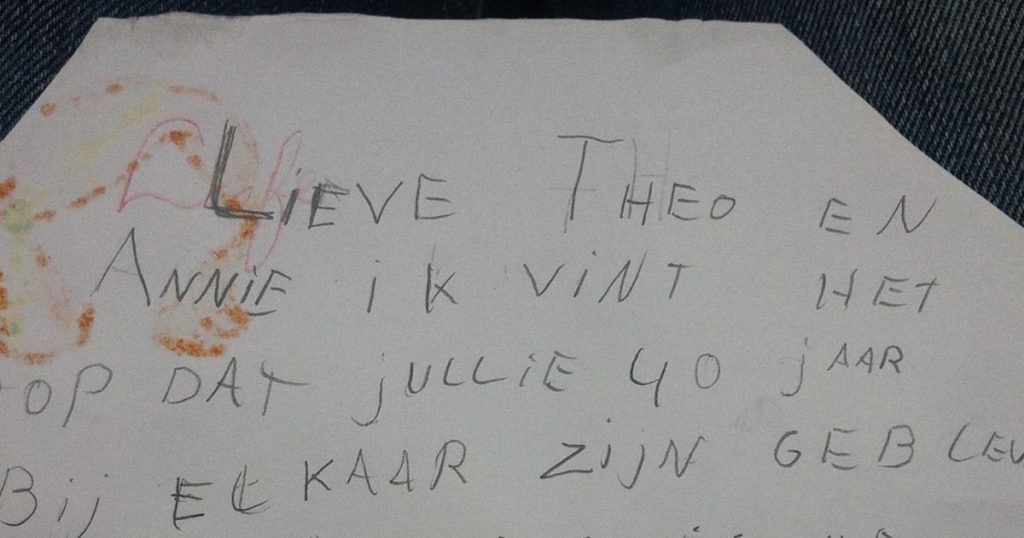 LIEVE THEO EN
ANNIE iK ViNT HET
TOP DAT jULLiE 40 jAAR
Bij ELKAAR ZijN GEBLEV